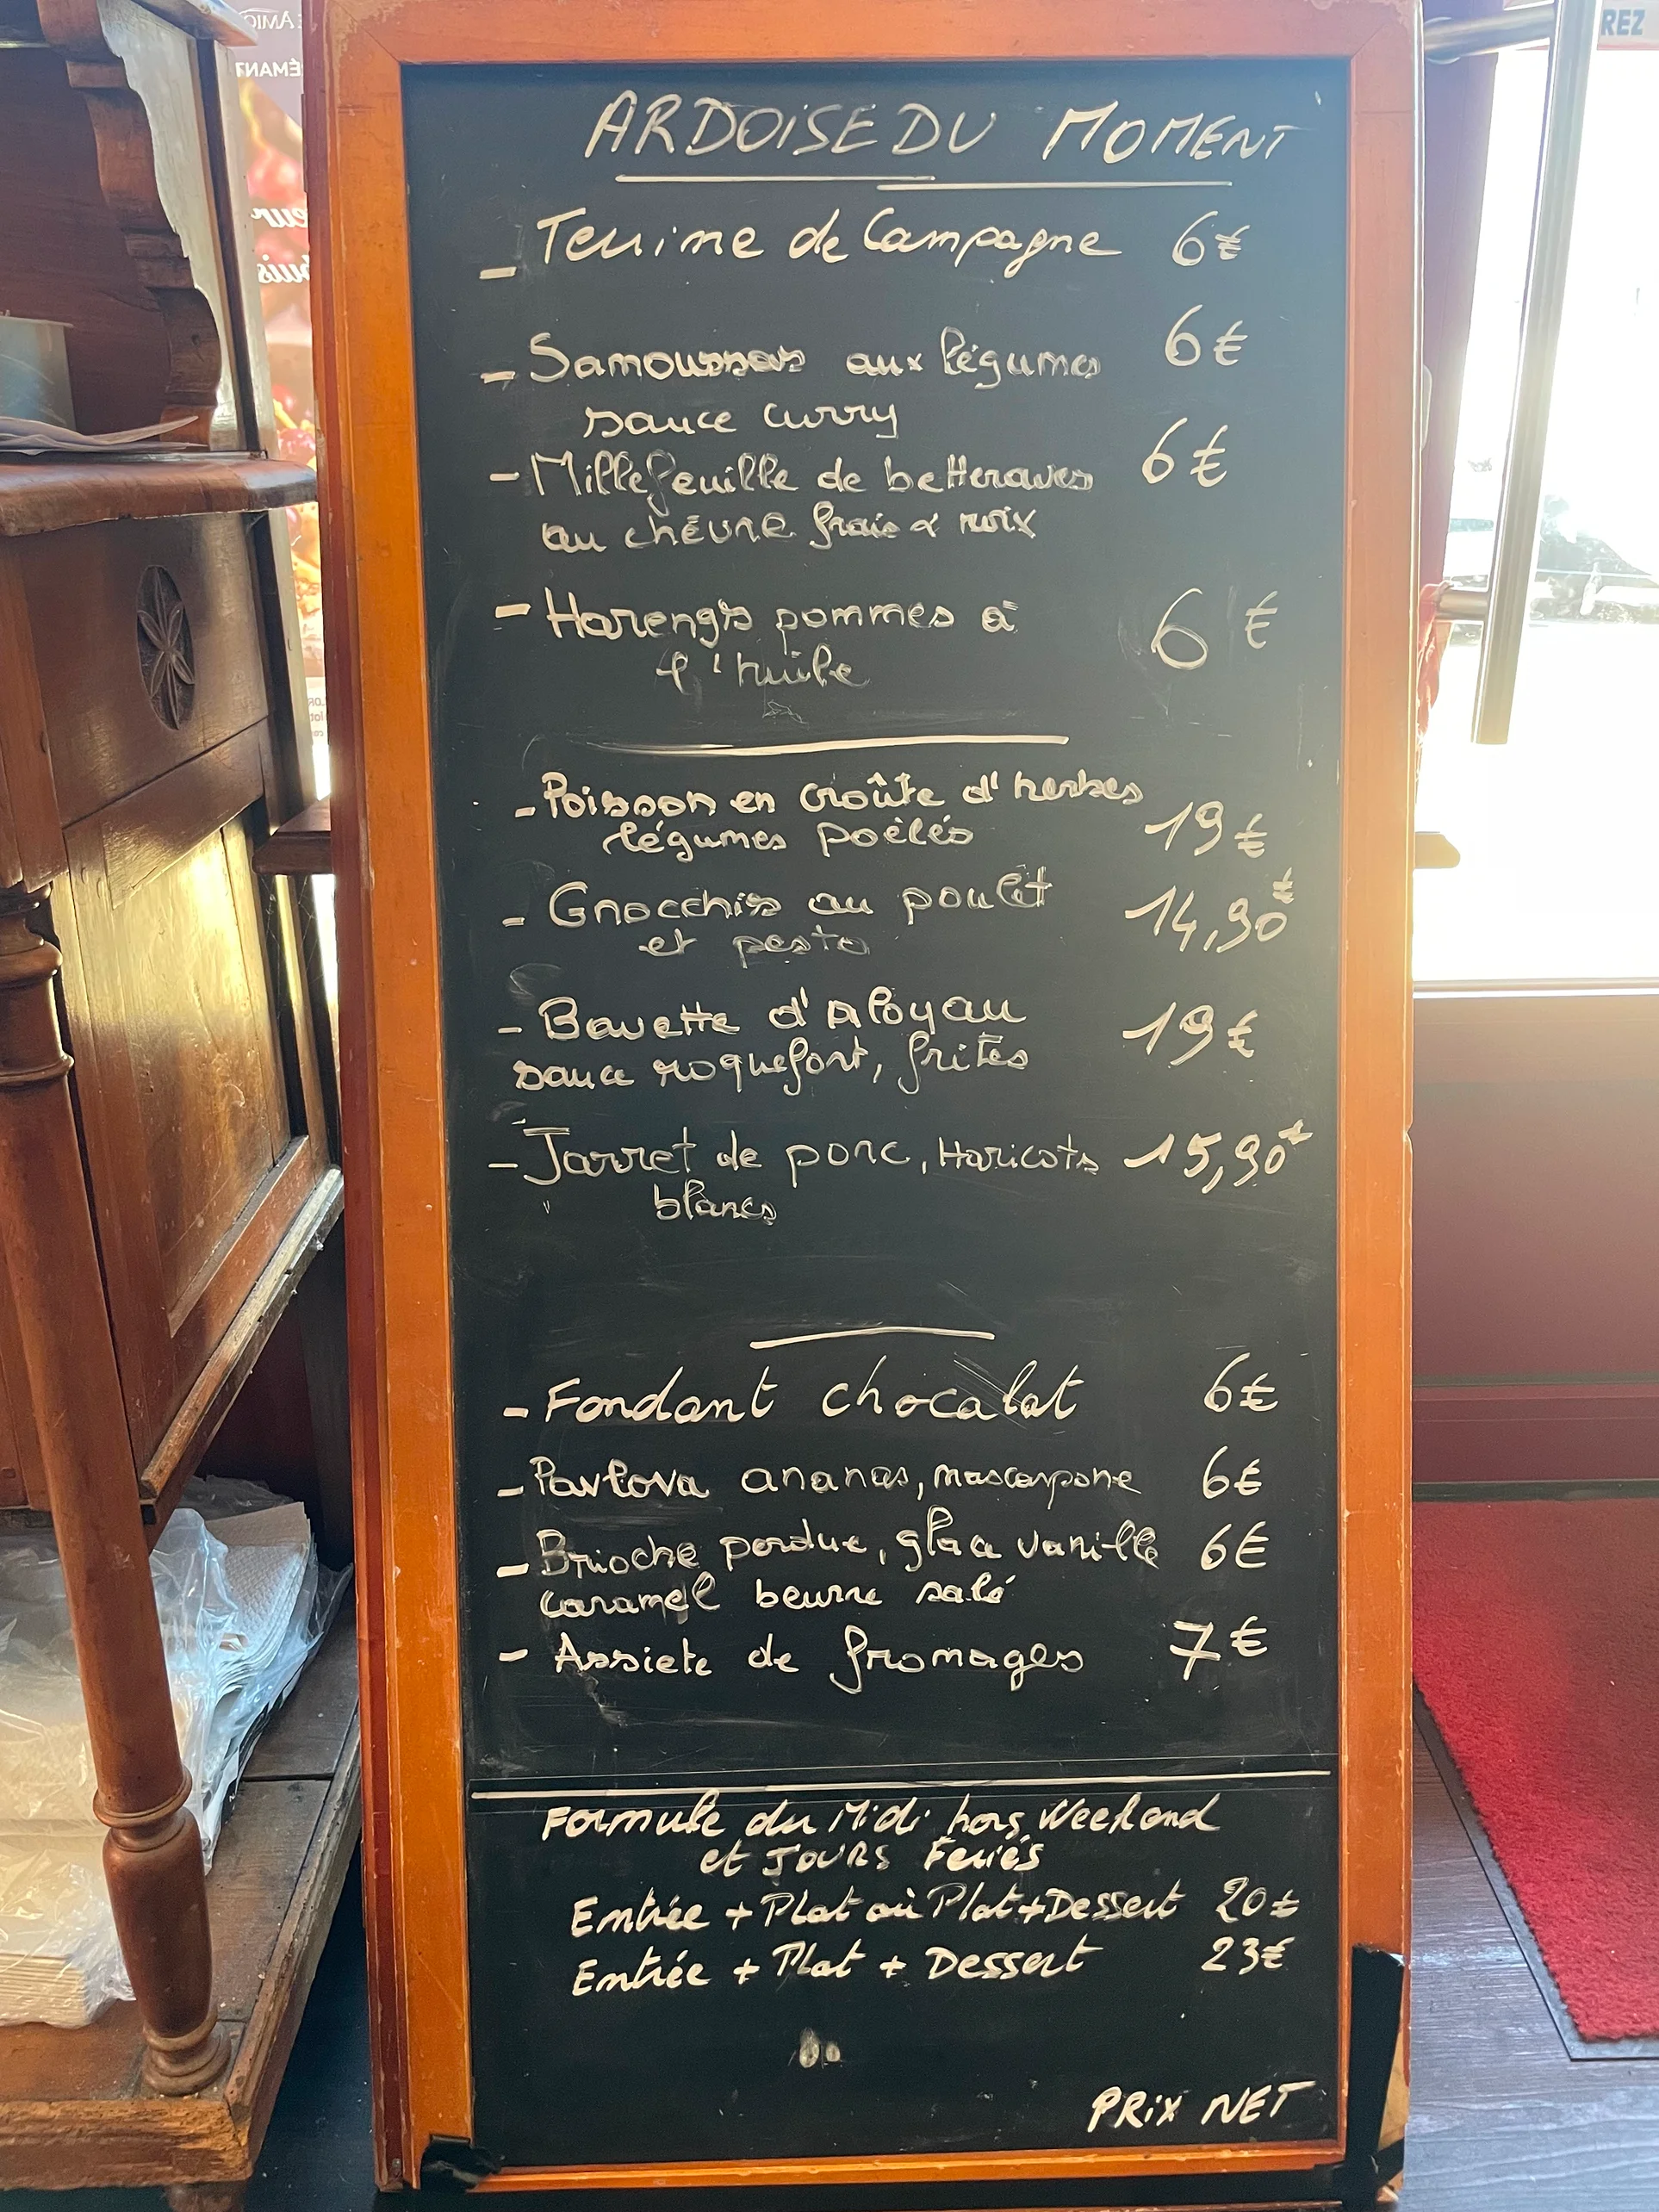 ARDOISE DU MOMENT
- Terrine de Campagne 6€
- Samoussas aux légumes 6€
sauce curry
- Millefeuille de betteraves 6€
au chèvre frais & noix
- Harengs pommes à 6€
l'huile
- Poisson en croûte d'herbes
légumes poêlés 19€
- Gnocchis au poulet 14,90€
et pesto
- Bavette d'Aloyau 19€
sauce roquefort, frites
- Jarret de porc, Haricots 15,90€
blancs
- Fondant chocolat 6€
- Pavlova ananas, mascarpone 6€
- Brioche perdue, glace vanille 6€
caramel beurre salé
- Assiete de fromages 7€
Formule du Midi hors Weekend
et JOURS Feriés
Entrée + Plat où Plat + Dessert 20€
Entrée + Plat + Dessert 23€
PRiX NET
REZ